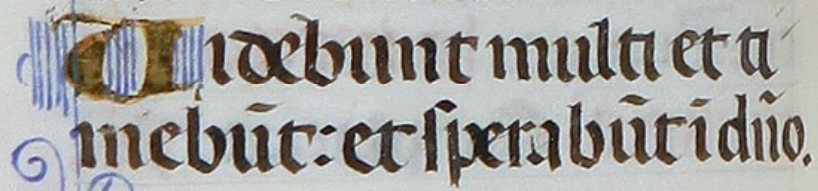 Videbunt multi et ti
mebūt: et sperabūt ī dn̄o.